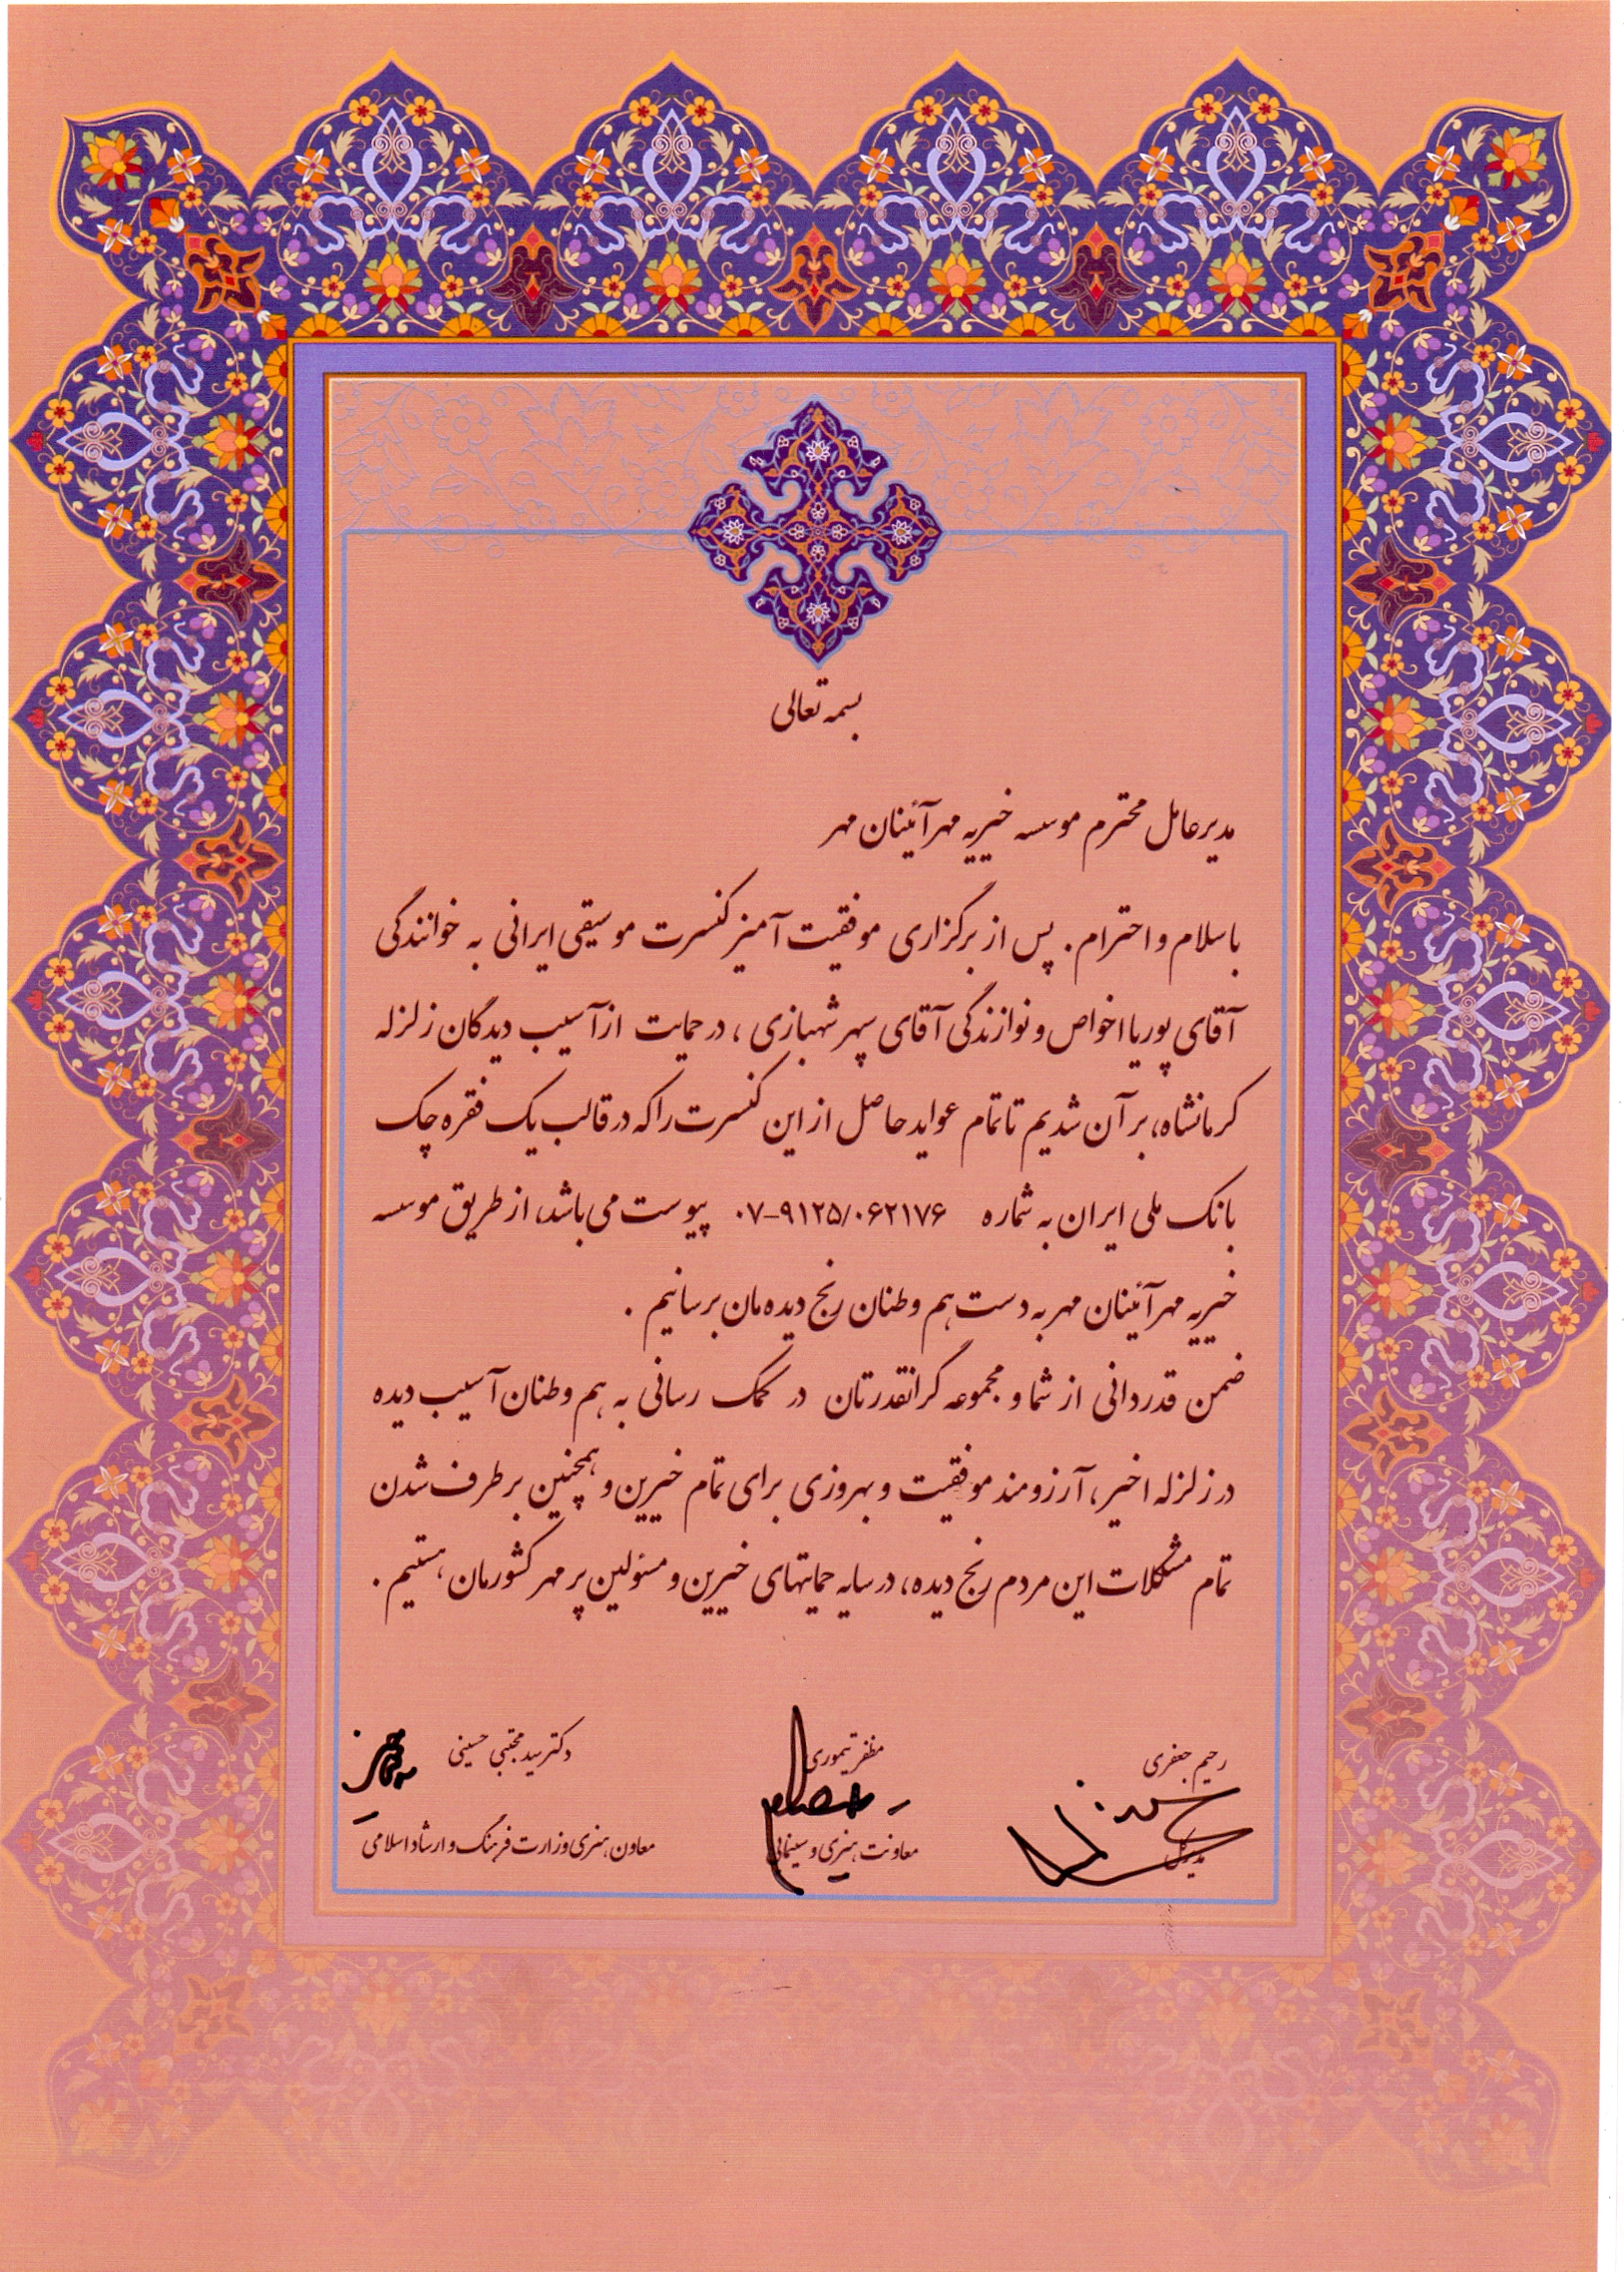 بسمه تعالی
مدیرعامل محترم موسسه خیریه مهرآئینان مهر
باسلام و احترام. پس از برگزاری موفقیت آمیز کنسرت موسیقی ایرانی به خوانندگی
آقای پوریا اخواص و نوازندگی آقای سپهر شهبازی ، در حمایت از آسیب دیدگان زلزله
کرمانشاه، بر آن شدیم تا تمام عواید حاصل از این کنسرت را که در قالب یک فقره چک
بانک ملی ایران به شماره ۰۷-۹۱۲۵/۰۶۲۱۷۶ پیوست می باشد، از طریق موسسه
خیریه مهرآئینان مهر به دست هم وطنان رنج دیده مان برسانیم .
ضمن قدردانی از شما و مجموعه گرانقدرتان در کمک رسانی به هم وطنان آسیب دیده
در زلزله اخیر، آرزومند موفقیت و بهروزی برای تمام خیرین و همچنین برطرف شدن
تمام مشکلات این مردم رنج دیده، در سایه حمایتهای خیرین و مسئولین پر مهر کشورمان هستیم .
رحیم جعفری
مدیرکل
مظفر تیموری
معاونت هنری و سینمائی
دکتر سید مجتبی حسینی
معاون هنری وزارت فرهنگ و ارشاد اسلامی